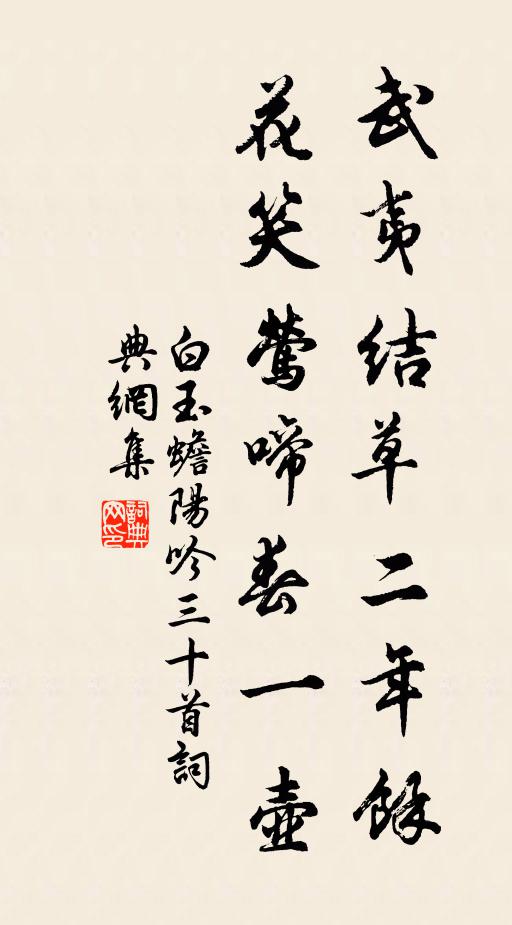 武夷結草二年餘
花笑鶯啼春一壺
白玉蟾陽吟三十首詞
典網集
詞典网印